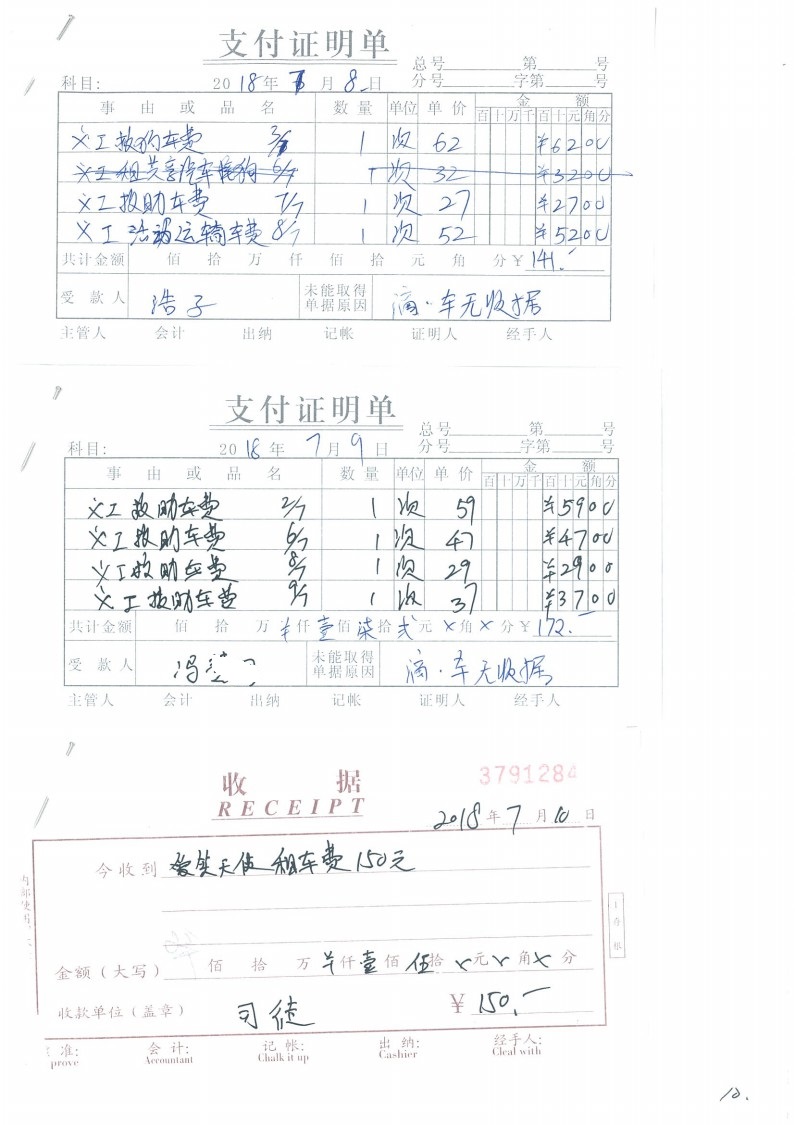 支付证明单
总号 第 号
科目: 2018年 7月 8日 分号 字第 号
事 由 或 品 名 数量 单位 单价 金 额
百十万千百十元角分
义工救狗车费 1 次 62 ¥6200
义工租共享汽车 狗 6/7 1 次 32 ¥3200
义工救助车费 7/7 1 次 27 ¥2700
义工活动运输车费 8/7 1 次 52 ¥5200
共计金额 佰 拾 万 仟 佰 拾 元 角 分 ¥ 141.-
受款人 浩子 未能取得单据原因 滴·车无收据
主管人 会计 出纳 记帐 证明人 经手人
支付证明单
总号 第 号
科目: 2018年 7月 9日 分号 字第 号
事 由 或 品 名 数量 单位 单价 金 额
百十万千百十元角分
义工救助车费 2/7 1 次 59 ¥5900
义工救助车费 6/7 1 次 47 ¥4700
义工救助车费 8/7 1 次 29 ¥2900
义工救助车费 9/7 1 次 37 ¥3700
共计金额 佰 拾 万 仟 壹 佰 柒 拾 弍 元 × 角 × 分 ¥ 172.-
受款人 冯 未能取得单据原因 滴·车无收据
主管人 会计 出纳 记帐 证明人 经手人
收 据 3791284
RECEIPT
2018年 7月 10日
今收到 爱笑天使 租车费150元
金额(大写) 佰 拾 万 仟 壹 佰 伍 拾 × 元 × 角 × 分
收款单位(盖章) 司徒 ¥ 150.-
准: 会计: 记帐: 出纳: 经手人:
prove Accountant Chalk it up Cashier Cleal with
10.